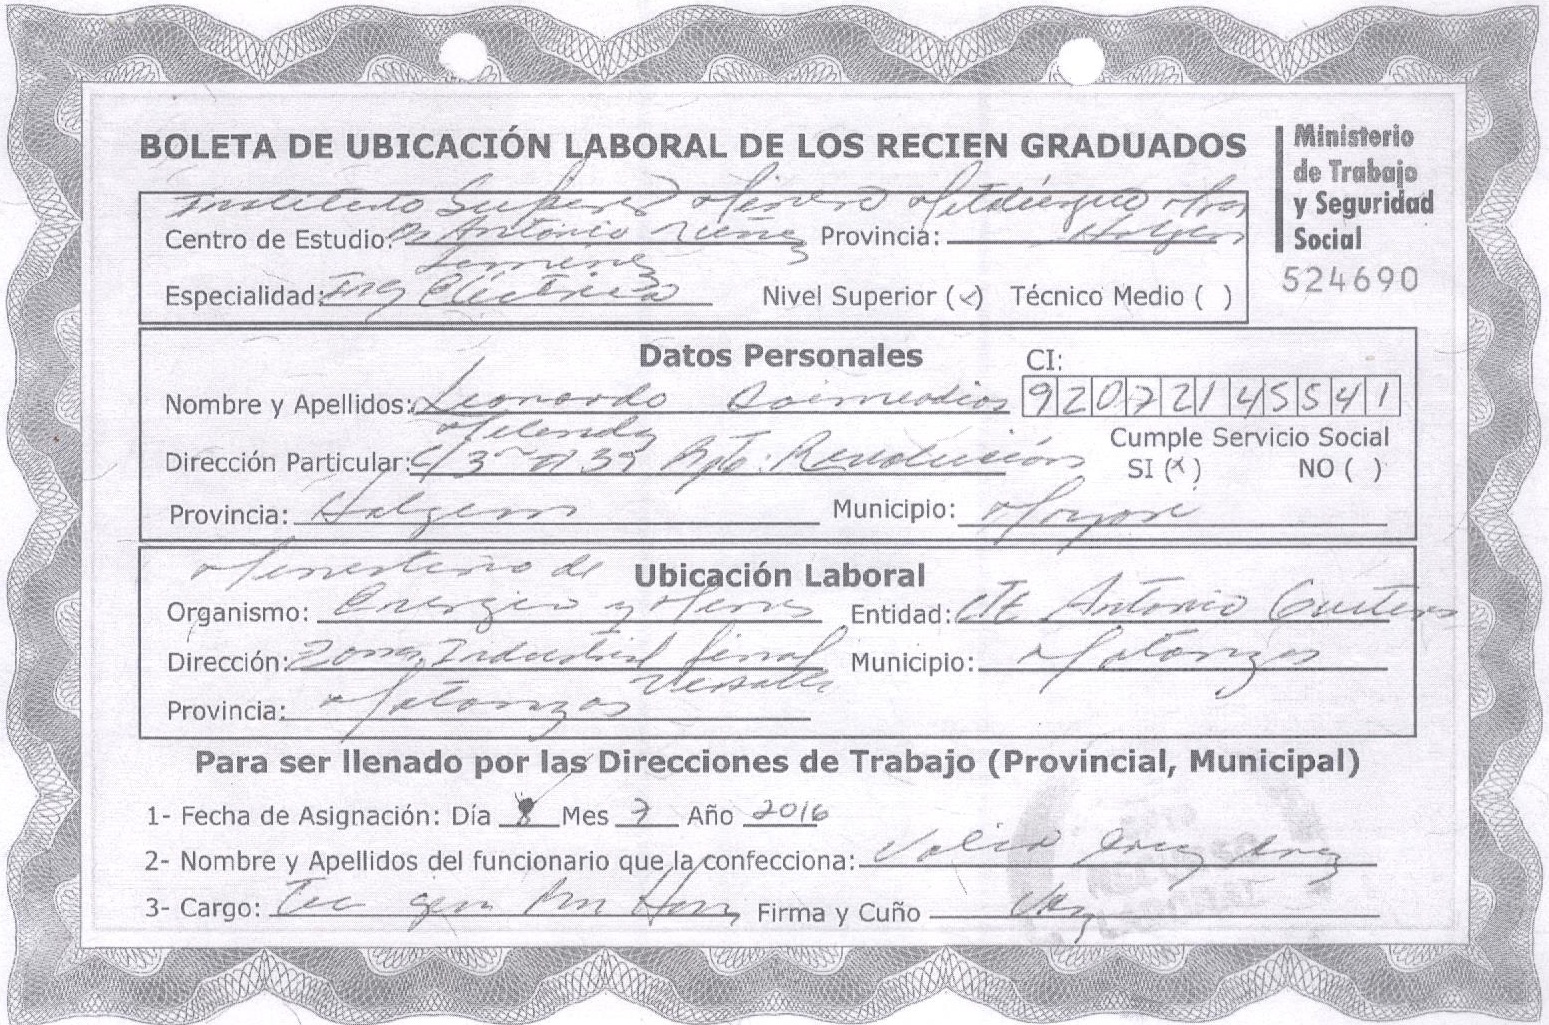 BOLETA DE UBICACIÓN LABORAL DE LOS RECIEN GRADUADOS
Ministerio
de Trabajo
y Seguridad
Social
524690
Instituto Superior Minero Metalúrgico Moa
Centro de Estudio: Dr Antonio Núñez Provincia: Holguín
Jiménez
Especialidad: Ing Eléctrica Nivel Superior (✓) Técnico Medio ( )
Datos Personales CI:
Nombre y Apellidos: Leonardo Coimedios 92072145541
Cumple Servicio Social
Dirección Particular: C/ 3ra # 39 Rpto: Revolución SI (x) NO ( )
Provincia: Holguín Municipio:
Ministerio de
Ubicación Laboral
Organismo: Energía y Minas Entidad: CTE Antonio Guiteras
Dirección: Zona Industrial final Municipio: Matanzas
Versalles
Provincia: Matanzas
Para ser llenado por las Direcciones de Trabajo (Provincial, Municipal)
1- Fecha de Asignación: Día 8 Mes 7 Año 2016
2- Nombre y Apellidos del funcionario que la confecciona:
3- Cargo: Tec Firma y Cuño